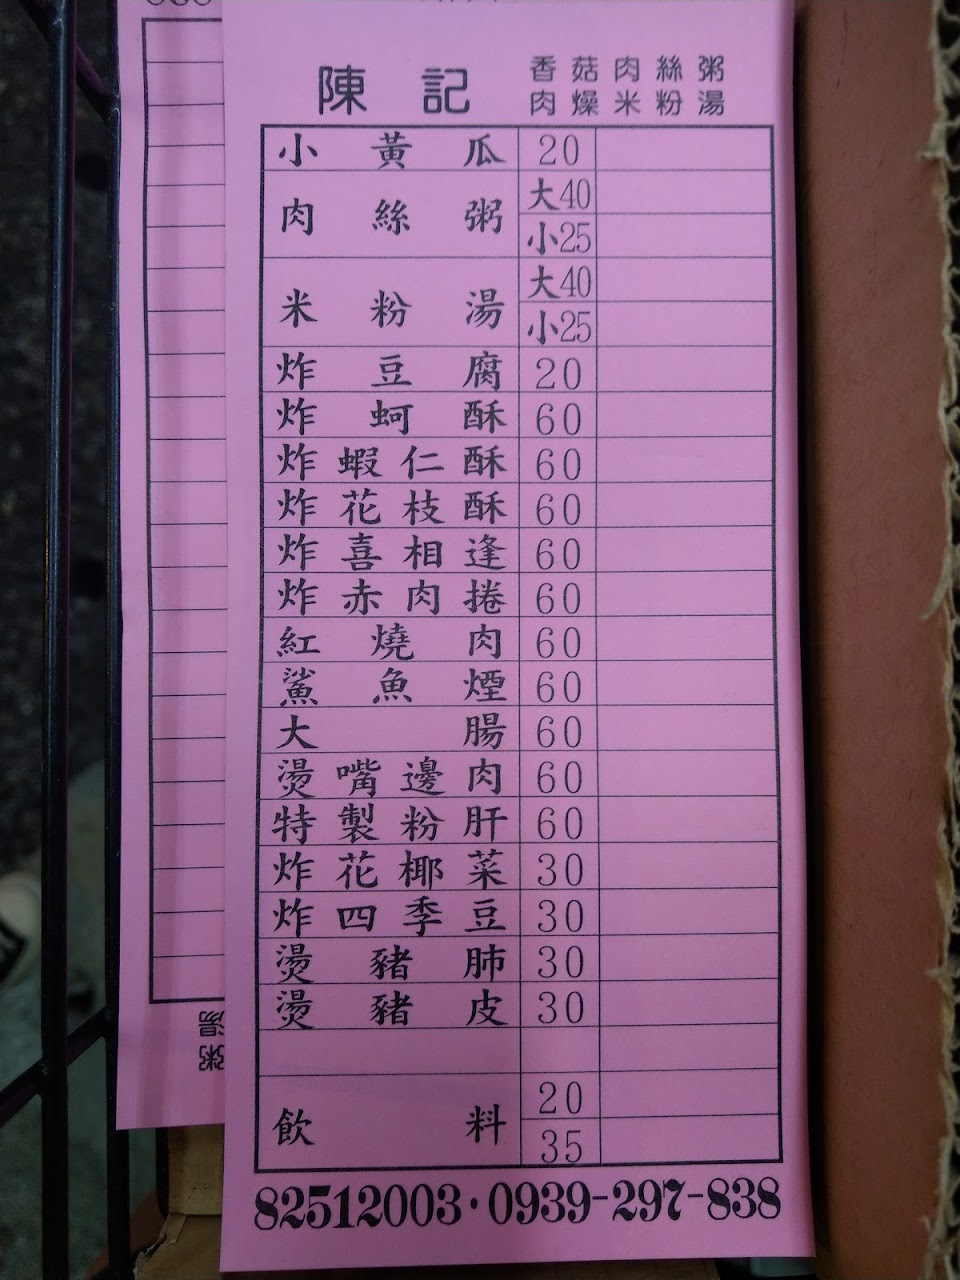 陳記
香菇肉絲粥
肉燥米粉湯
小黃瓜 20
肉絲粥 大40
小25
米粉湯 大40
小25
炸豆腐 20
炸蚵酥 60
炸蝦仁酥 60
炸花枝酥 60
炸喜相逢 60
炸赤肉捲 60
紅燒肉 60
鯊魚煙 60
大腸 60
燙嘴邊肉 60
特製粉肝 60
炸花椰菜 30
炸四季豆 30
燙豬肺 30
燙豬皮 30
飲料 20
35
82512003·0939-297-838
粥
湯